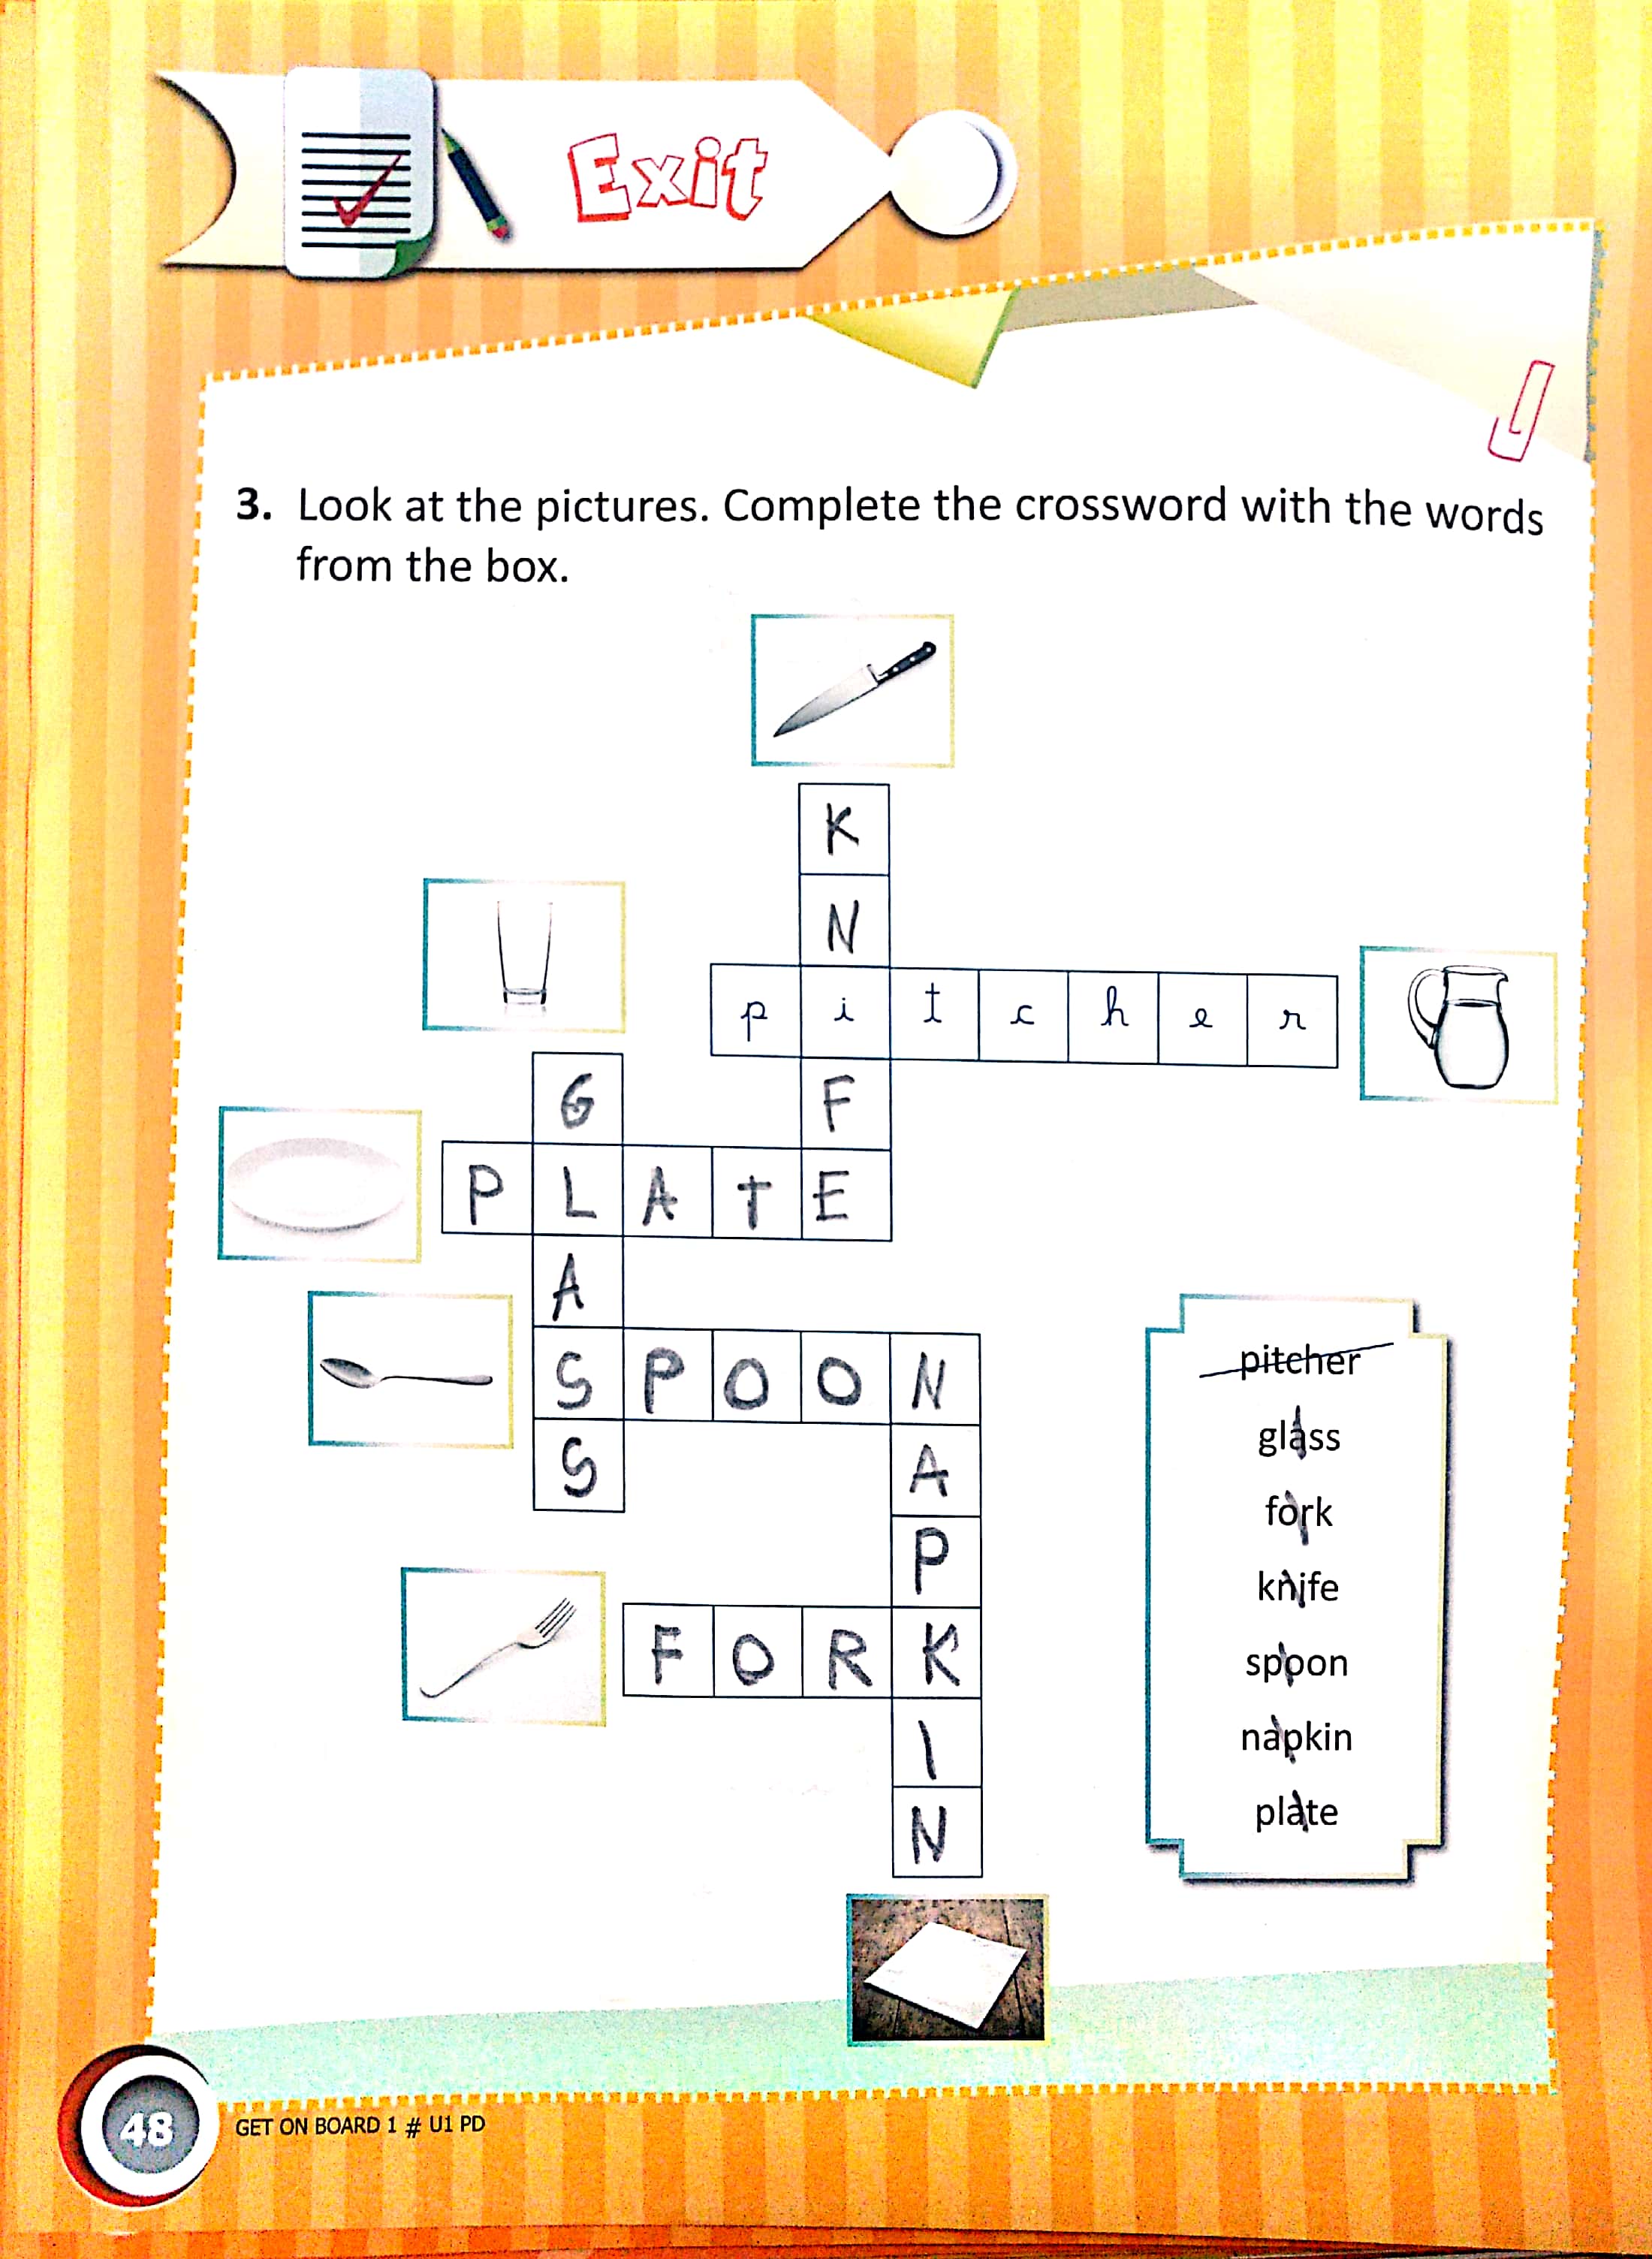 Exit
3. Look at the pictures. Complete the crossword with the words
from the box.
K
N
p i t c h e r
G F
P L A T E
A
S P O O N
S A
P
F O R K
I
N
pitcher
glass
fork
knife
spoon
napkin
plate
48
GET ON BOARD 1 # U1 PD